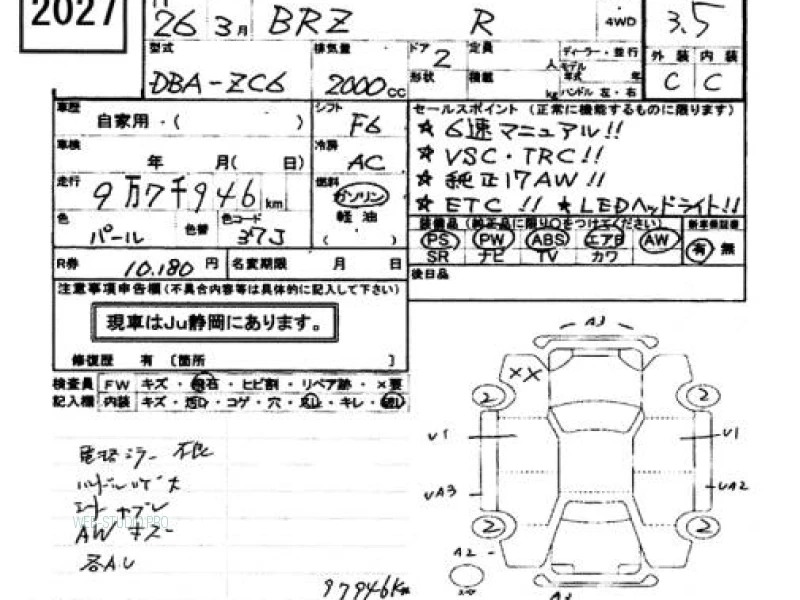 2027
26 3月 BRZ R 4WD 3.5
型式 排気量 ドア 2 定員 人 ディーラー・並行 外装 内装
DBA-ZC6 2000cc 形状 積載 kg モデル年式 年 ハンドル 左・右 C C
車歴 自家用・( ) シフト F6
車検 年 月( 日) 冷房 AC
走行 9万7千946km 燃料 ガソリン
軽油
( )
色 パール 色替 色コード 37J
R券 10,180円 名変期限 月 日
セールスポイント(正常に機能するものに限ります)
☆ 6速マニュアル!!
☆ VSC・TRC!!
☆ 純正17AW!!
☆ ETC!! ★LEDヘッドライト!!
装備品(純正品に限り○をつけてください) 新車保証書
PS PW ABS エアB AW 有 無
SR ナビ TV カワ
後日品
注意事項申告欄(不具合内容等は具体的に記入して下さい)
現車はJu静岡にあります。
修復歴 有 〔箇所 〕
検査員 FW キズ・飛石・ヒビ割・リペア跡・×要
記入欄 内装 キズ・・コゲ・穴・・キレ・
ミラー 不良
AW キズ
各AU
WEB-STUDIO.PRO
97946Km
A3
XX
2 2
U1 U1
UA3 UA2
2 2
A2